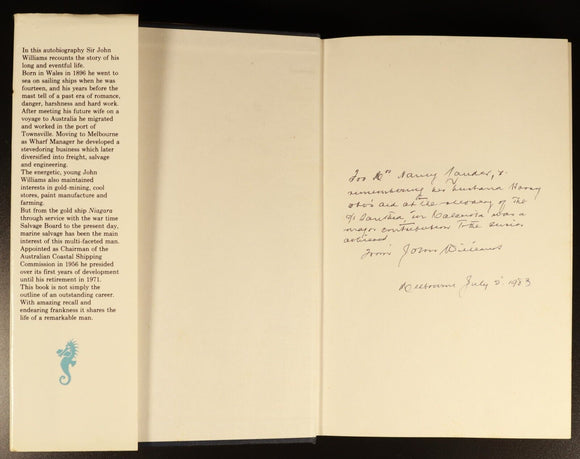 In this autobiography Sir John
Williams recounts the story of his
long and eventful life.
Born in Wales in 1896 he went to
sea on sailing ships when he was
fourteen, and his years before the
mast tell of a past era of romance,
danger, harshness and hard work.
After meeting his future wife on a
voyage to Australia he migrated
and worked in the port of
Townsville. Moving to Melbourne
as Wharf Manager he developed a
stevedoring business which later
diversified into freight, salvage
and engineering.
The energetic, young John
Williams also maintained
interests in gold-mining, cool
stores, paint manufacture and
farming.
But from the gold ship Niagara
through service with the war time
Salvage Board to the present day,
marine salvage has been the main
interest of this multi-faceted man.
Appointed as Chairman of the
Australian Coastal Shipping
Commission in 1956 he presided
over its first years of development
until his retirement in 1971.
This book is not simply the
outline of an outstanding career.
With amazing recall and
endearing frankness it shares the
life of a remarkable man.
For Mrs Nancy
remembering her husband Harry
who's aid at the recovery of the
for was a
major contribution to the
John Williams
Melbourne July 5 1983